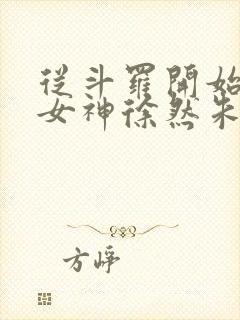 從斗羅開始
女神徐然朱
方崢